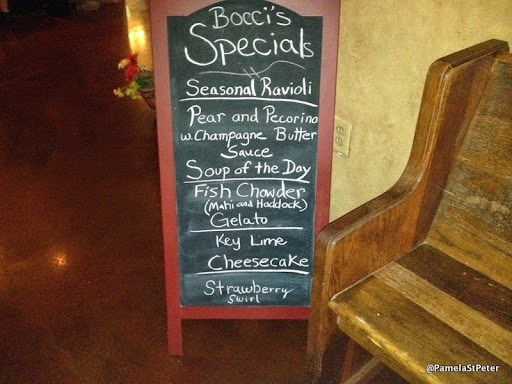 Bocci's
Specials
Seasonal Ravioli
Pear and Pecorino
w. Champagne Butter
Sauce
Soup of the Day
Fish Chowder
(Mahi and Haddock)
Gelato
Key Lime
Cheesecake
Strawberry
Swirl
@PamelaStPeter